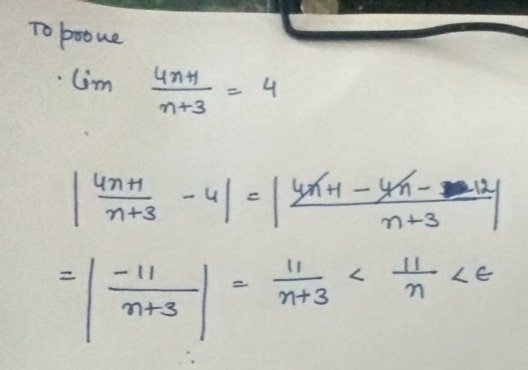 To proove
· lim (4n+1)/(n+3) = 4
|(4n+1)/(n+3) - 4| = |(4n+1 - 4n - 12)/(n+3)|
= |(-11)/(n+3)| = 11/(n+3) < 11/n < ϵ